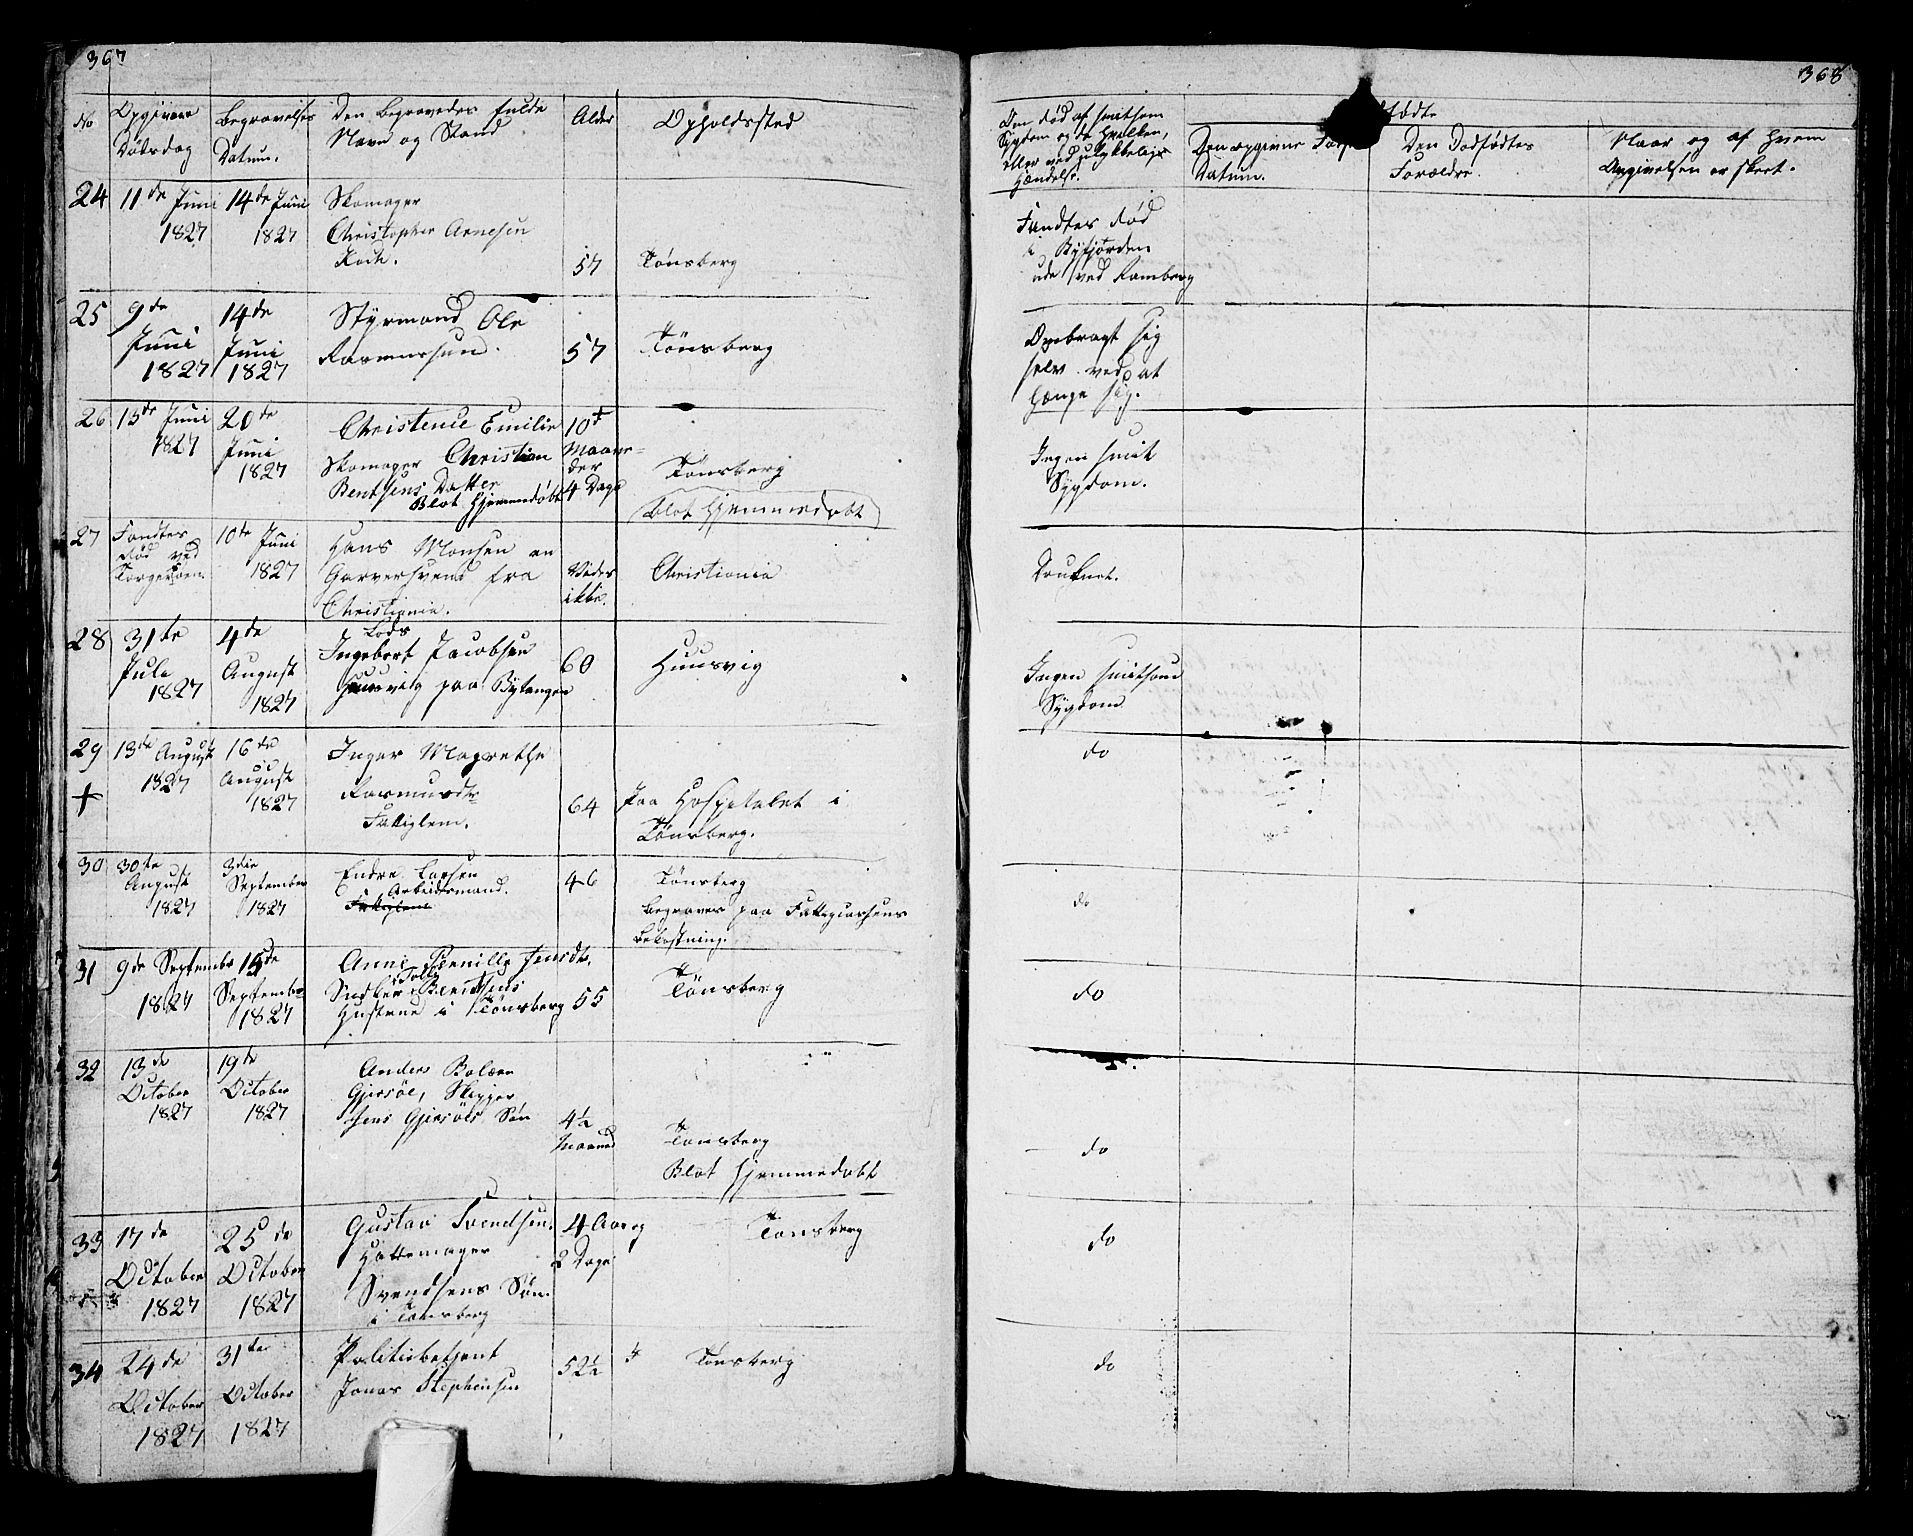 367
No
Opgivne
Dødsdag
Begravelses
Datum.
Den Begravedes fulde
Navn og Stand
Alder
Opholdssted
24
11de Juni
1827
14de Juni
1827
Skomager
Christopher Arnesen
Koch.
57
Tønsberg
25
9de
Juni
1827
14de
Juni
1827
Styrmand Ole
Rasmussen.
57
Tønsberg
26
15de Juni
1827
20de
Juni
1827
Christence Emilie
Skomager Christian
Bentsens Datter
Blot Hjemmedøbt
10
Maane-
der
4 Dage
Tønsberg
(blot Hjemmedøbt)
27
Fandtes
død ved
10de Juni
1827
Hans Monsen en
Garversvend fra
Christiania.
Vides
ikke.
Christiania
28
31te
Jule
1827
4de
August
1827
Lods
Ingebort Jacobsen
Huusvig paa Bytangen
60
Huusvig
29
+
13de August
1827
16de
August
1827
Inger Magrethe
Rasmusdtr
Fattiglem.
64
Paa Hospitalet i
Tønsberg.
30
30te
August
1827
3die
September
1827
Endre Larsen
Arbeidsmand.
Fattiglem
46
Tønsberg
Begraves paa Fattigcassens
Bekostning.
31
9de September
1827
15de
September
1827
Anne Pernille Jensdtr.
Bentsens
Hustrue i Tønsberg
55
Tønsberg
32
13de
October
1827
19de
October
1827
Anders Bolæren
Gjersøe, Skipper
Jens Gjersøes Søn
4½
Maaned
Tønsberg
Blot Hjemmedøbt
33
17de
October
1827
25de
October
1827
Gustav Svendsen.
Hattemager
Svendsens Søn
i Tønsberg
4 Aar og
2 Dage
Tønsberg
34
24de
October
1827
31te
October
1827
Politiebetjent
Jonas Stephensen
52½
Tønsberg
368
Om død af smitsom
Sygdom og da hvilken,
eller ved ulykkelige
Hændelse.
Den opgivne
Datum.
Den Dødfødtes
Forældre.
Naar og af hvem
Angivelsen er skeet.
Fandtes død
i Byfjorden
ude ved Ramberg
Ombragt sig
selv ved at
hænge sig.
Ingen smit
Sygdom.
Druknet.
Ingen smitsom
Sygdom
do
do
do
do
do
do